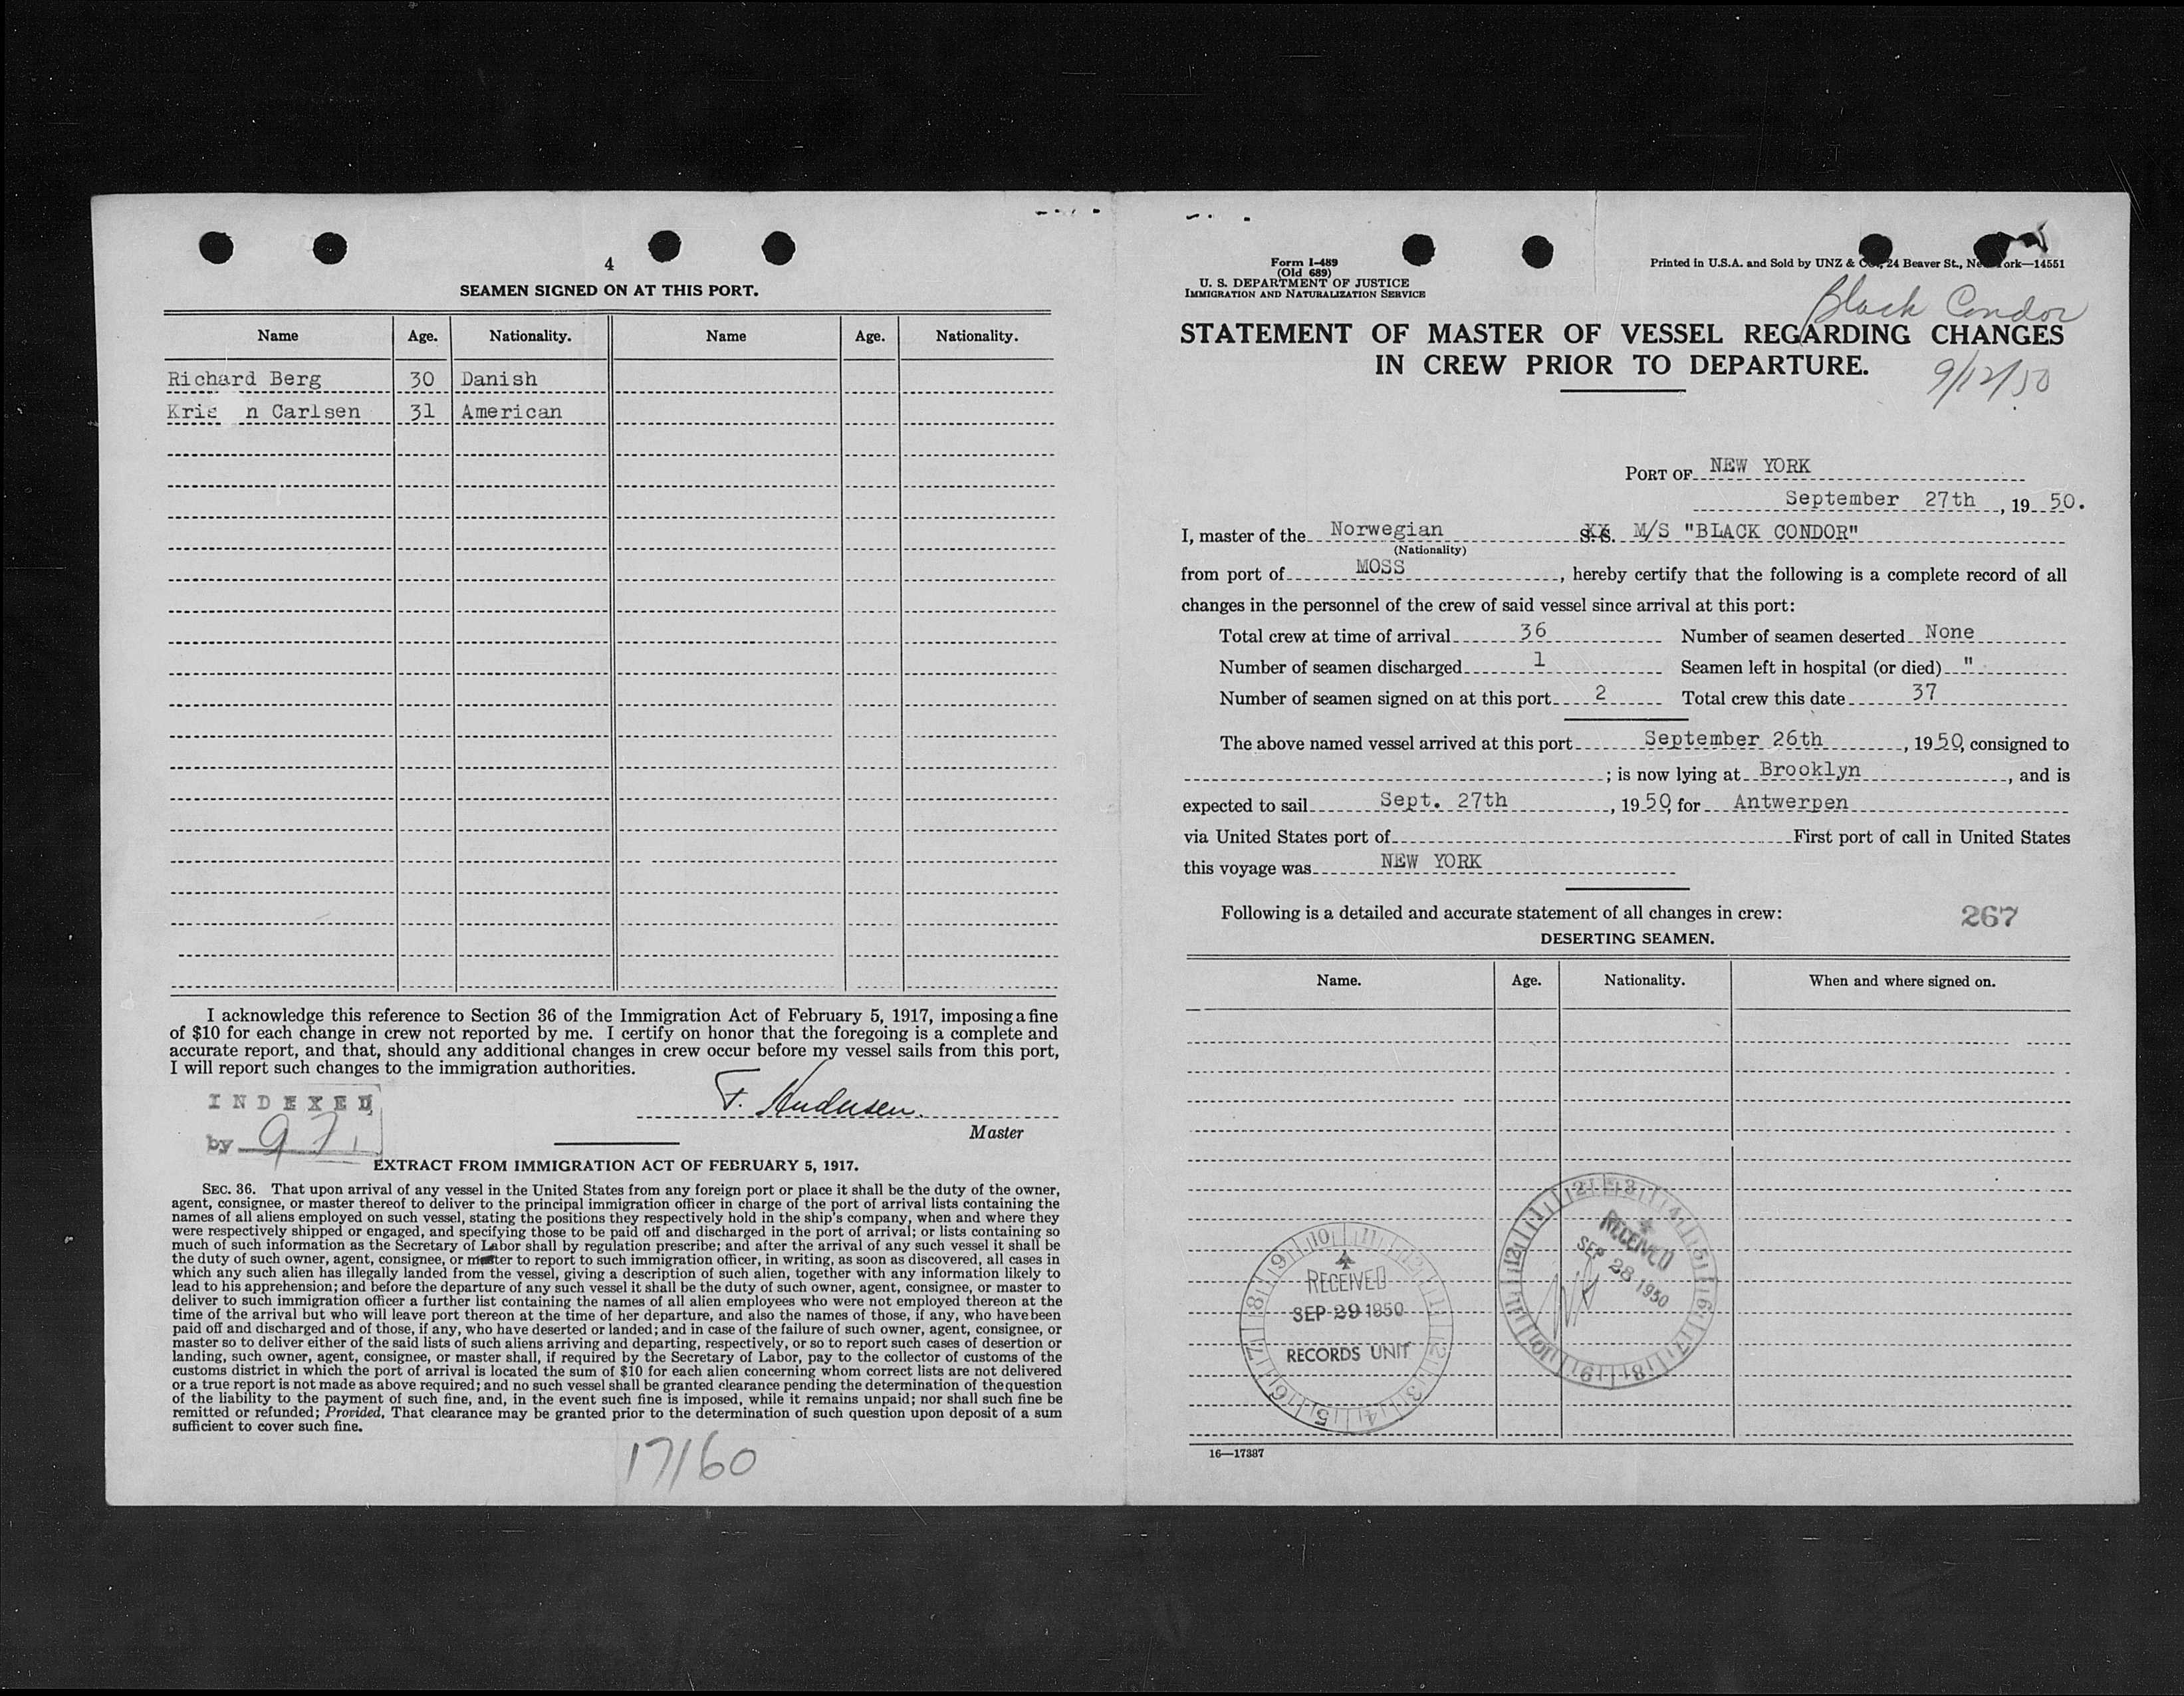 4
SEAMEN SIGNED ON AT THIS PORT.
Name Age. Nationality. Name Age. Nationality.
Richard Berg 30 Danish
Kris n Carlsen 31 American
I acknowledge this reference to Section 36 of the Immigration Act of February 5, 1917, imposing a fine
of $10 for each change in crew not reported by me. I certify on honor that the foregoing is a complete and
accurate report, and that, should any additional changes in crew occur before my vessel sails from this port,
I will report such changes to the immigration authorities.
F. Andersen.
Master
INDEXED
by
EXTRACT FROM IMMIGRATION ACT OF FEBRUARY 5, 1917.
SEC. 36. That upon arrival of any vessel in the United States from any foreign port or place it shall be the duty of the owner,
agent, consignee, or master thereof to deliver to the principal immigration officer in charge of the port of arrival lists containing the
names of all aliens employed on such vessel, stating the positions they respectively hold in the ship's company, when and where they
were respectively shipped or engaged, and specifying those to be paid off and discharged in the port of arrival; or lists containing so
much of such information as the Secretary of Labor shall by regulation prescribe; and after the arrival of any such vessel it shall be
the duty of such owner, agent, consignee, or master to report to such immigration officer, in writing, as soon as discovered, all cases in
which any such alien has illegally landed from the vessel, giving a description of such alien, together with any information likely to
lead to his apprehension; and before the departure of any such vessel it shall be the duty of such owner, agent, consignee, or master to
deliver to such immigration officer a further list containing the names of all alien employees who were not employed thereon at the
time of the arrival but who will leave port thereon at the time of her departure, and also the names of those, if any, who have been
paid off and discharged and of those, if any, who have deserted or landed; and in case of the failure of such owner, agent, consignee, or
master so to deliver either of the said lists of such aliens arriving and departing, respectively, or so to report such cases of desertion or
landing, such owner, agent, consignee, or master shall, if required by the Secretary of Labor, pay to the collector of customs of the
customs district in which the port of arrival is located the sum of $10 for each alien concerning whom correct lists are not delivered
or a true report is not made as above required; and no such vessel shall be granted clearance pending the determination of the question
of the liability to the payment of such fine, and, in the event such fine is imposed, while it remains unpaid; nor shall such fine be
remitted or refunded; Provided, That clearance may be granted prior to the determination of such question upon deposit of a sum
sufficient to cover such fine.
17/60
Form I-489
(Old 689)
U. S. DEPARTMENT OF JUSTICE
IMMIGRATION AND NATURALIZATION SERVICE
Printed in U.S.A. and Sold by UNZ & Co., 24 Beaver St., New York—14551
Black Condor
STATEMENT OF MASTER OF VESSEL REGARDING CHANGES
IN CREW PRIOR TO DEPARTURE.
9/12/50
PORT OF NEW YORK
September 27th, 19 50.
I, master of the Norwegian S. S. M/S "BLACK CONDOR"
(Nationality)
from port of MOSS, hereby certify that the following is a complete record of all
changes in the personnel of the crew of said vessel since arrival at this port:
Total crew at time of arrival 36 Number of seamen deserted None
Number of seamen discharged 1 Seamen left in hospital (or died) "
Number of seamen signed on at this port 2 Total crew this date 37
The above named vessel arrived at this port September 26th, 19 50, consigned to
; is now lying at Brooklyn, and is
expected to sail Sept. 27th, 19 50, for Antwerpen
via United States port of First port of call in United States
this voyage was NEW YORK
Following is a detailed and accurate statement of all changes in crew:
267
DESERTING SEAMEN.
Name. Age. Nationality. When and where signed on.
RECEIVED
SEP 28 1950
RECEIVED
SEP 29 1950
RECORDS UNIT
16—17387